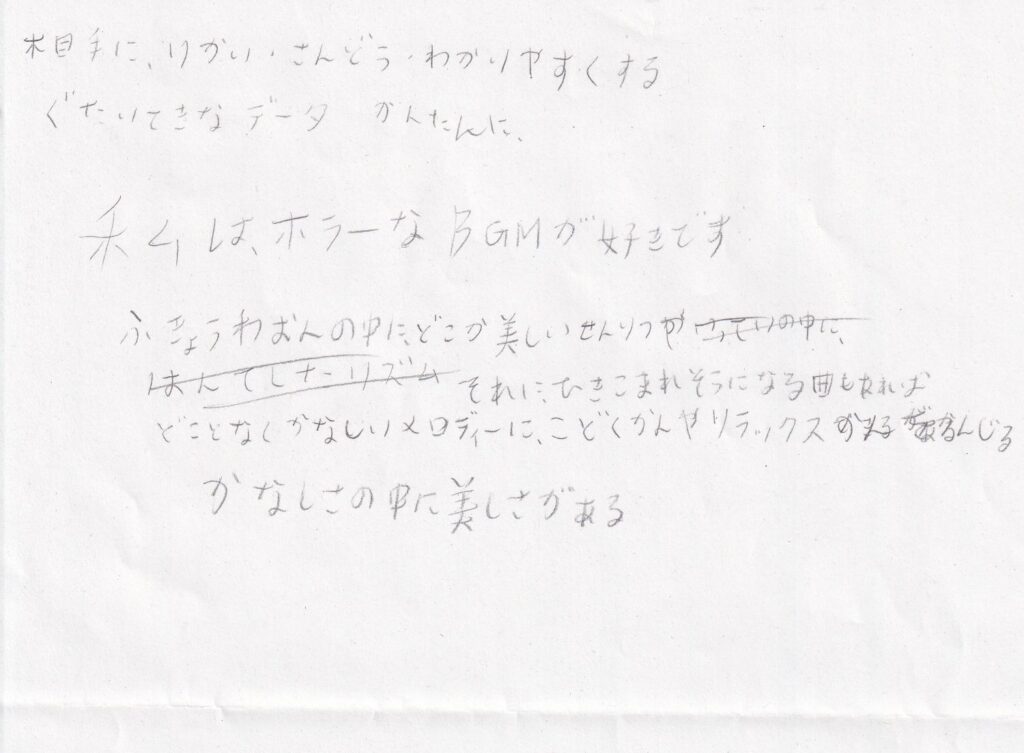 相手に、りかい・さんどう・わかりやすくする
ぐたいてきなデータ かんたんに、
私は、ホラーなBGMが好きです
ふきょうわおんの中に、どこか美しいせんりつや の中に、
はんてしたリズム それに、ひきこまれそうになる曲もあれば
どことなくかなしいメロディーに、こどくかんやリラックス かんじる
かなしさの中に美しさがある